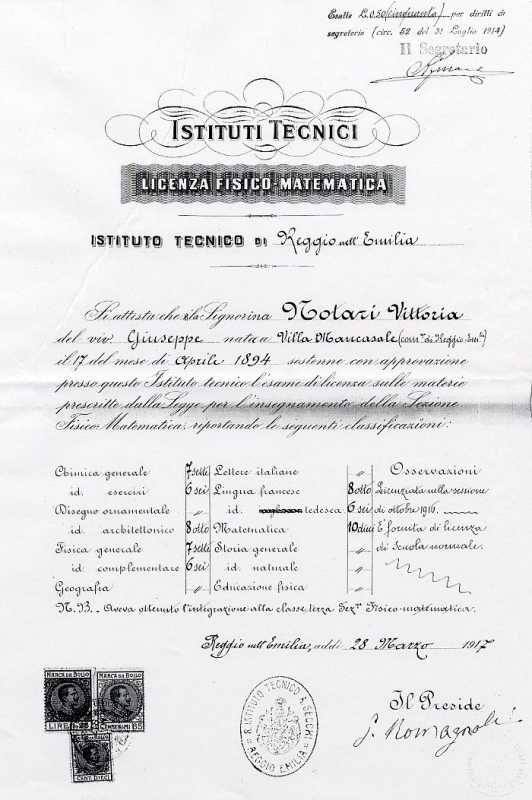 Esatte L. 0.50 (cinquanta) per diritti di
segreteria (circ. 52 del 31 Luglio 1914)
Il Segretario
ISTITUTI TECNICI
LICENZA FISICO-MATEMATICA
ISTITUTO TECNICO DI Reggio nell'Emilia
Si attesta che la Signorina Notari Vittoria
del viv. Giuseppe nata a Villa Mancasale (com. di Reggio Em.a)
il 17 del mese di Aprile 1894 sostenne con approvazione
presso questo Istituto tecnico l'esame di licenza sulle materie
prescritte dalla Legge per l'insegnamento della Sezione
Fisico Matematica, riportando le seguenti classificazioni:
Chimica generale 7 sette Lettere italiane " Osservazioni
id. esercizi 6 sei Lingua francese 8 otto Licenziata nella sessione
Disegno ornamentale " id. tedesca 6 sei di ottobre 1916.
id. architettonico 8 otto Matematica 10 dieci È fornita di licenza
Fisica generale 7 sette Storia generale " di Scuola normale.
id. complementare 6 sei id. naturale "
Geografia " Educazione fisica "
N.B. - Aveva ottenuto l'integrazione alla classe terza Sez. Fisico-matematica.
Reggio nell'Emilia, addì 28 Marzo 1917
Il Preside
G. Romagnoli
MARCA DA BOLLO MARCA DA BOLLO
LIRE
CENT. DIECI
R. ISTITUTO TECNICO A. SECCHI
REGGIO EMILIA